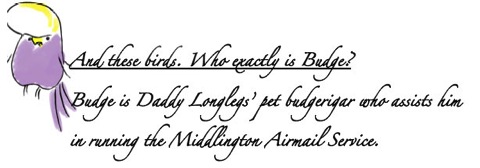 And these birds. Who exactly is Budge?
Budge is Daddy Longlegs' pet budgerigar who assists him
in running the Middlington Airmail Service.